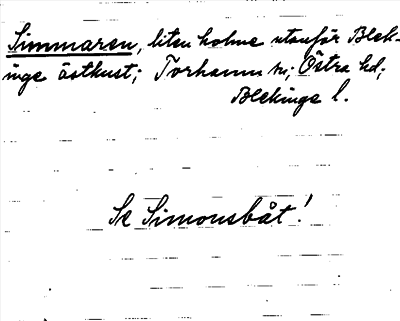 Simmaren, liten holme utanför Blek-
inge östkust; Torhamn sn; Östra hd;
Blekinge l.
Se Simonsbåt!